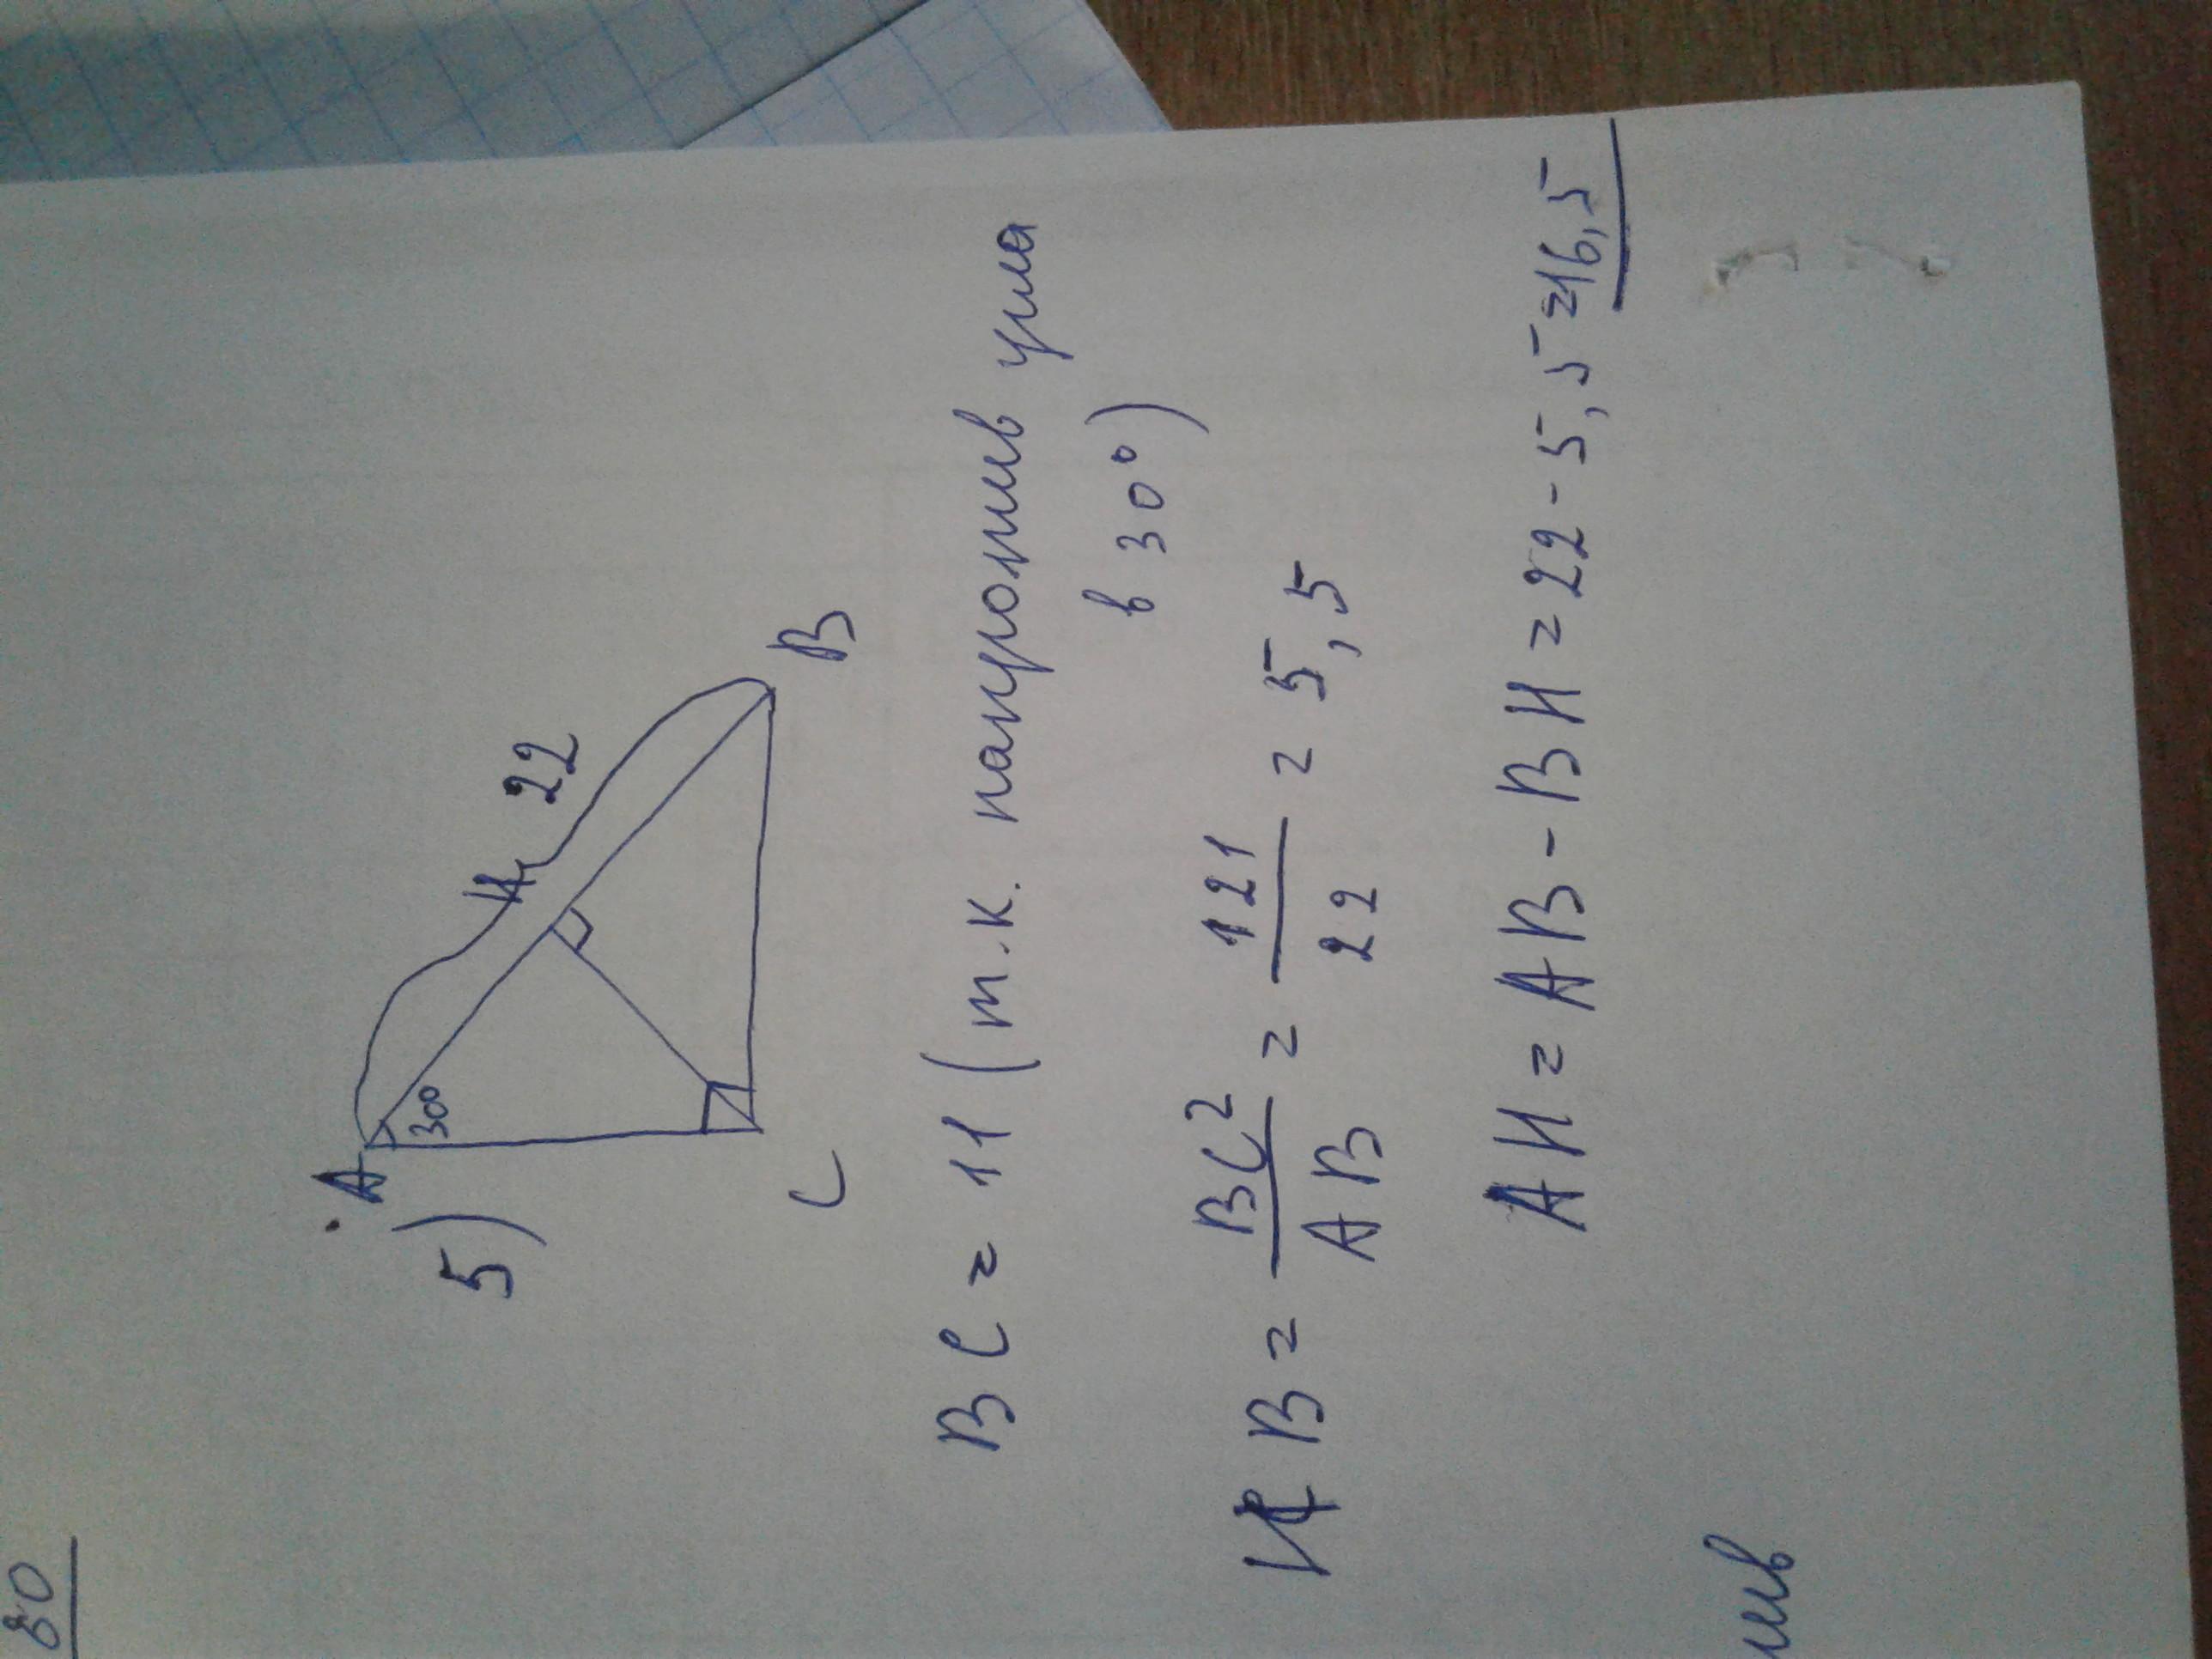 80
5)
A
30°
H
22
C
B
BC = 11 (т.к. напротив угла
в 30°)
HB = BC²/AB = 121/22 = 5,5
AH = AB - BH = 22 - 5,5 = 16,5
тив